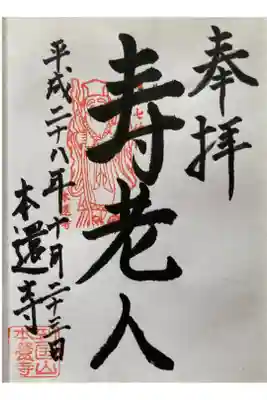 奉拝
寿老人
平成二十八年十月二十三日
本還寺